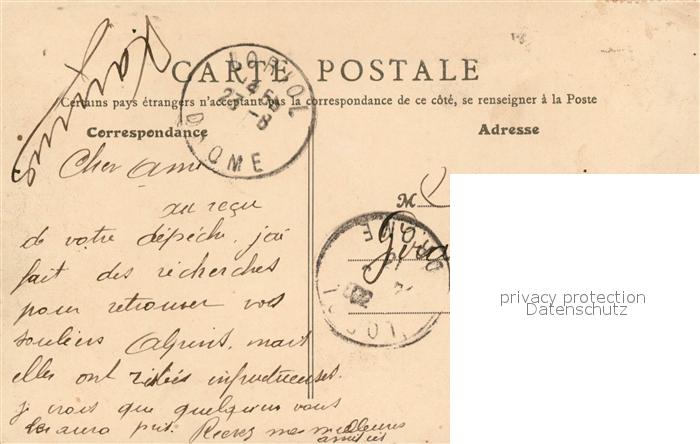 CARTE POSTALE
Certains pays étrangers n'acceptant pas la correspondance de ce côté, se renseigner à la Poste
Correspondance
Adresse
LORIOL
DROME
Cher Ami
au reçu
de votre dépêche, j'ai
fait des recherches
pour retrouver vos
souliers Alpins, mais
elles ont restées infructueuses.
je crois que quelqu'un vous
les aura pris. Recevez mes meilleures
amitiés
M
privacy protection
Datenschutz